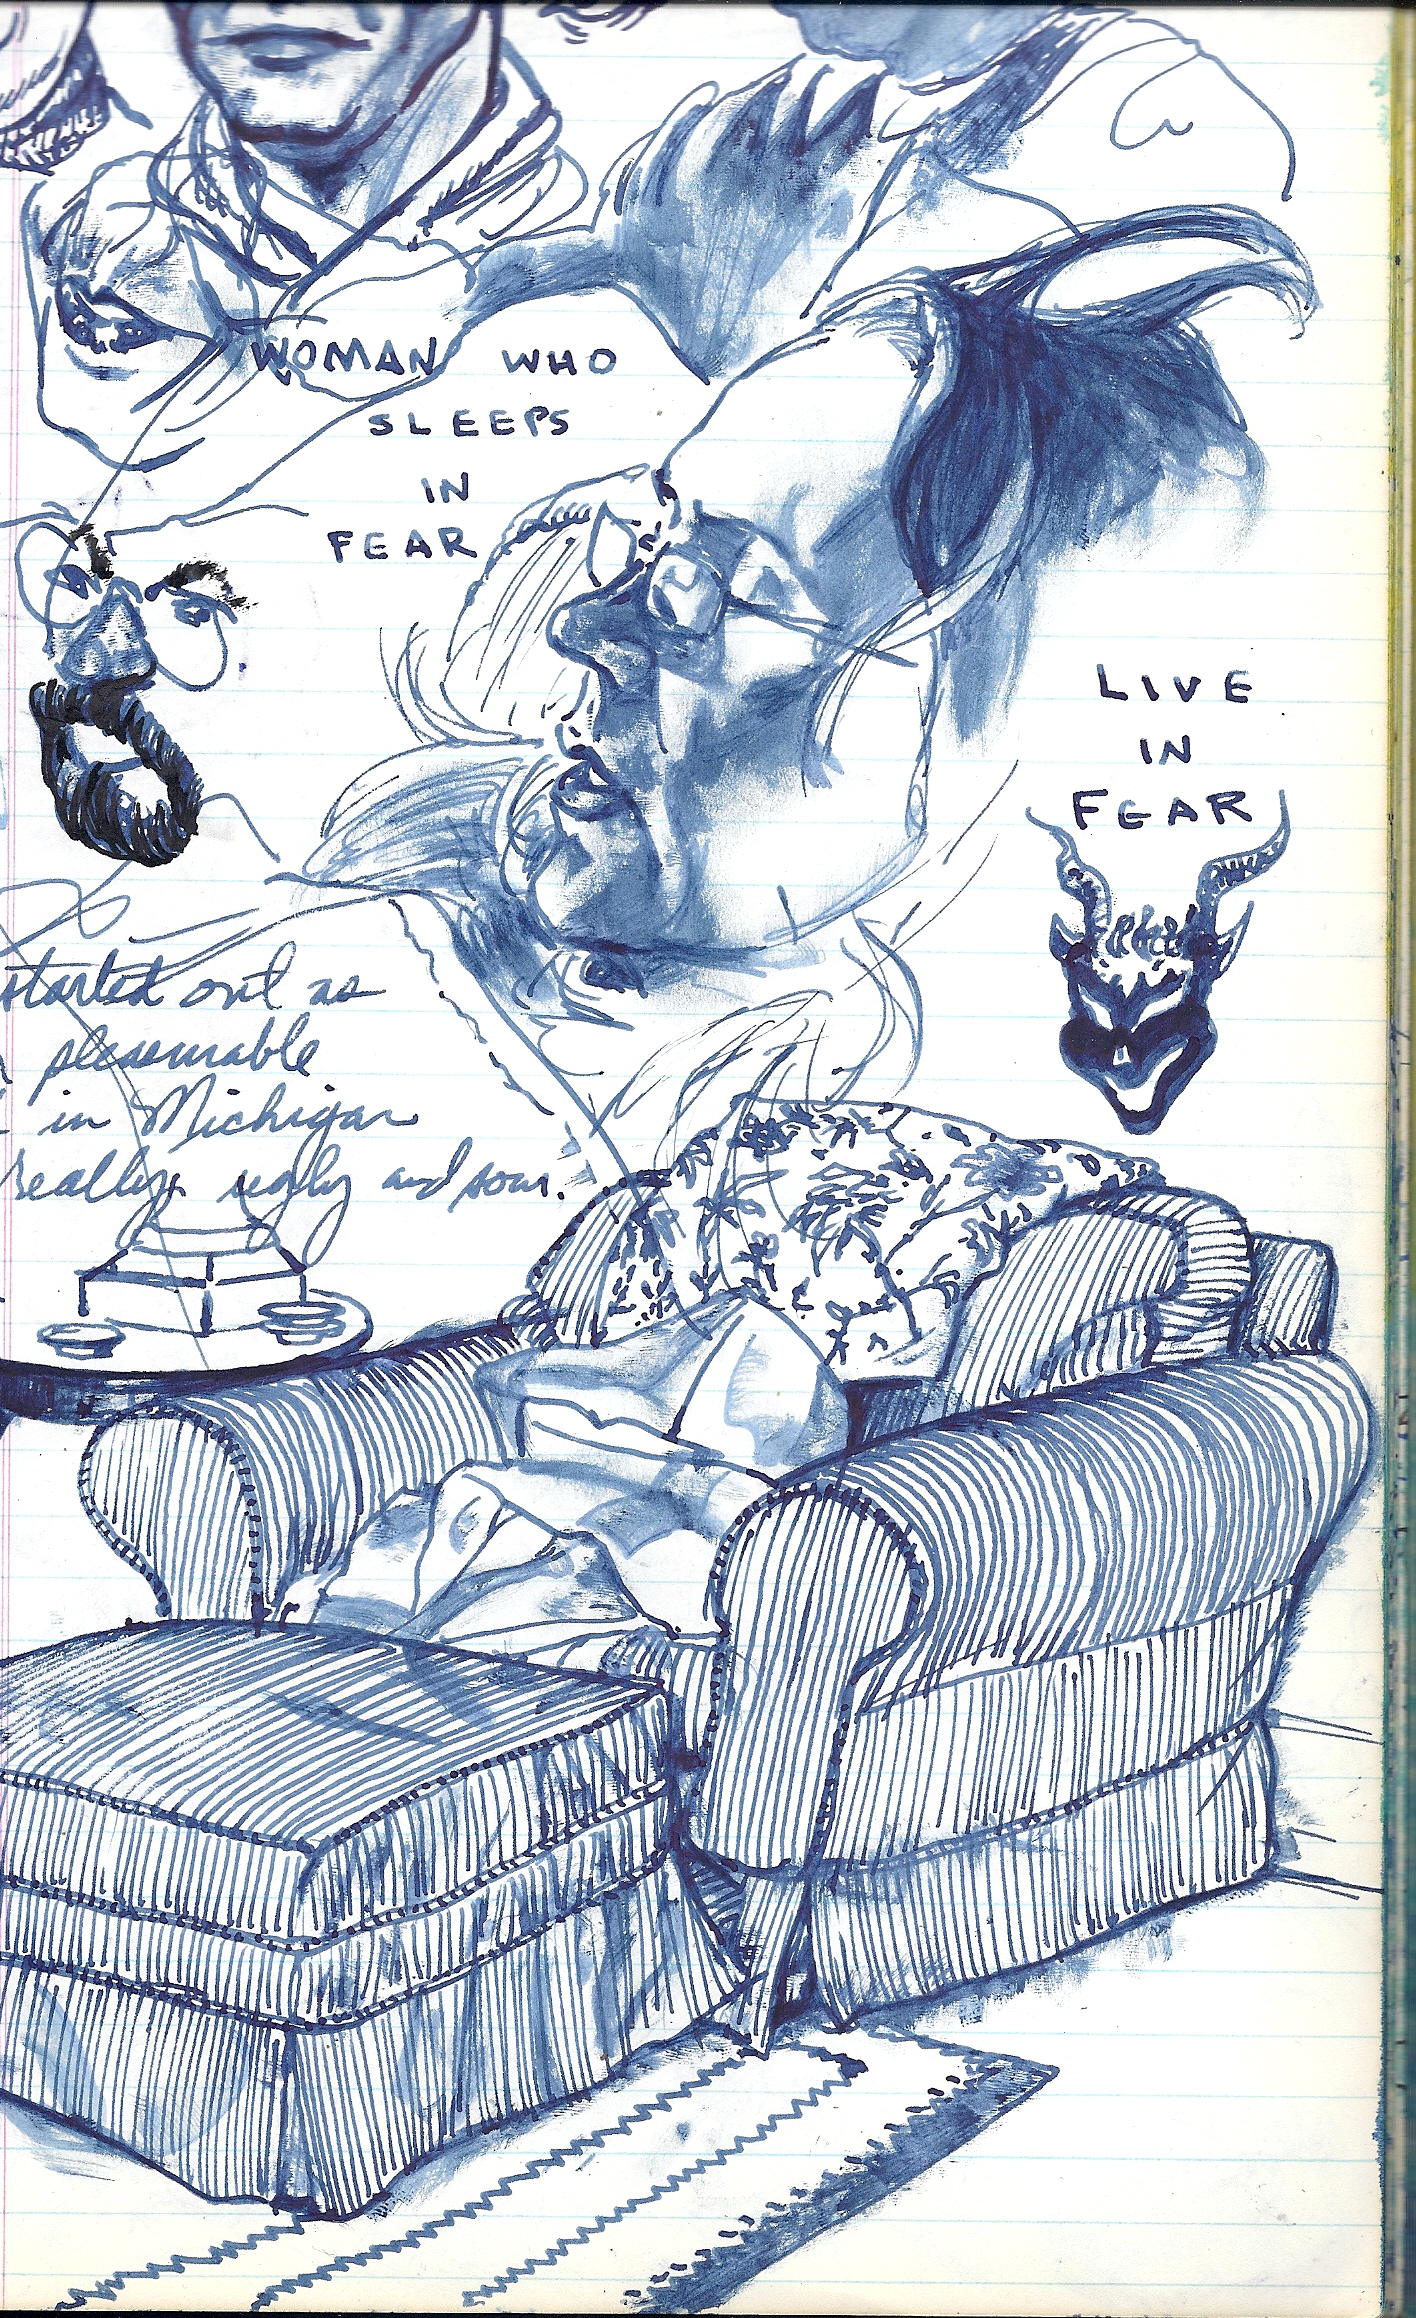 WOMAN WHO
SLEEPS
IN
FEAR
LIVE
IN
FEAR
started out as
pleasurable
in Michigan
really ugly and sour.